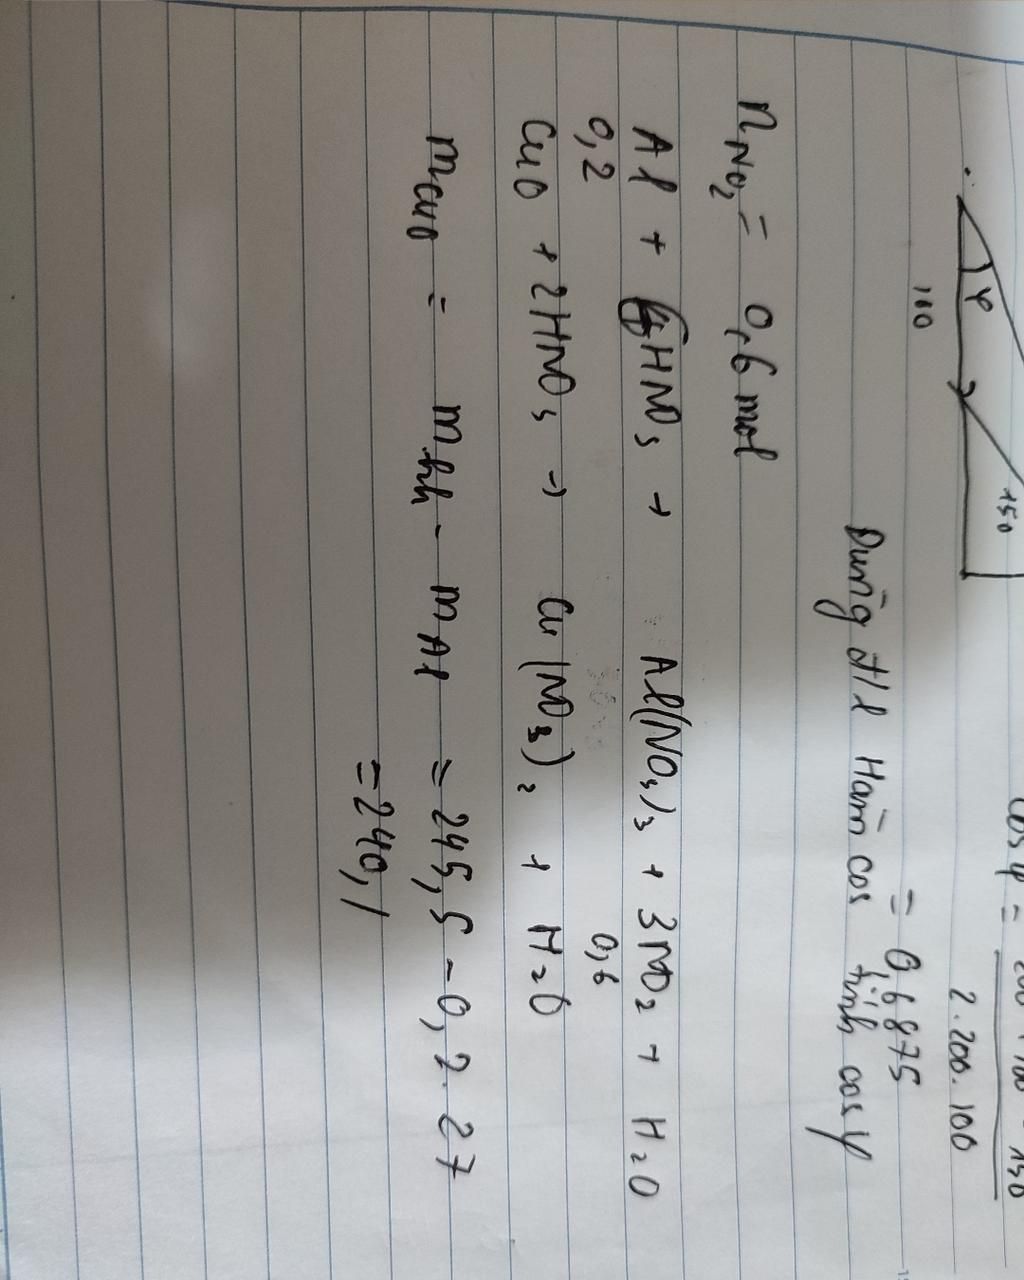 φ
100
150
cos φ =
2.200.100
= 0,6875
Dùng đ/l Hàm cos tính cos φ
nNO₂ = 0,6 mol
Al + 6HNO₃ → Al(NO₃)₃ + 3NO₂ + H₂O
0,2 0,6
CuO + 2HNO₃ → Cu(NO₃)₂ + H₂O
mCuO = mhh - mAl = 245,5 - 0,2.27
= 240,1